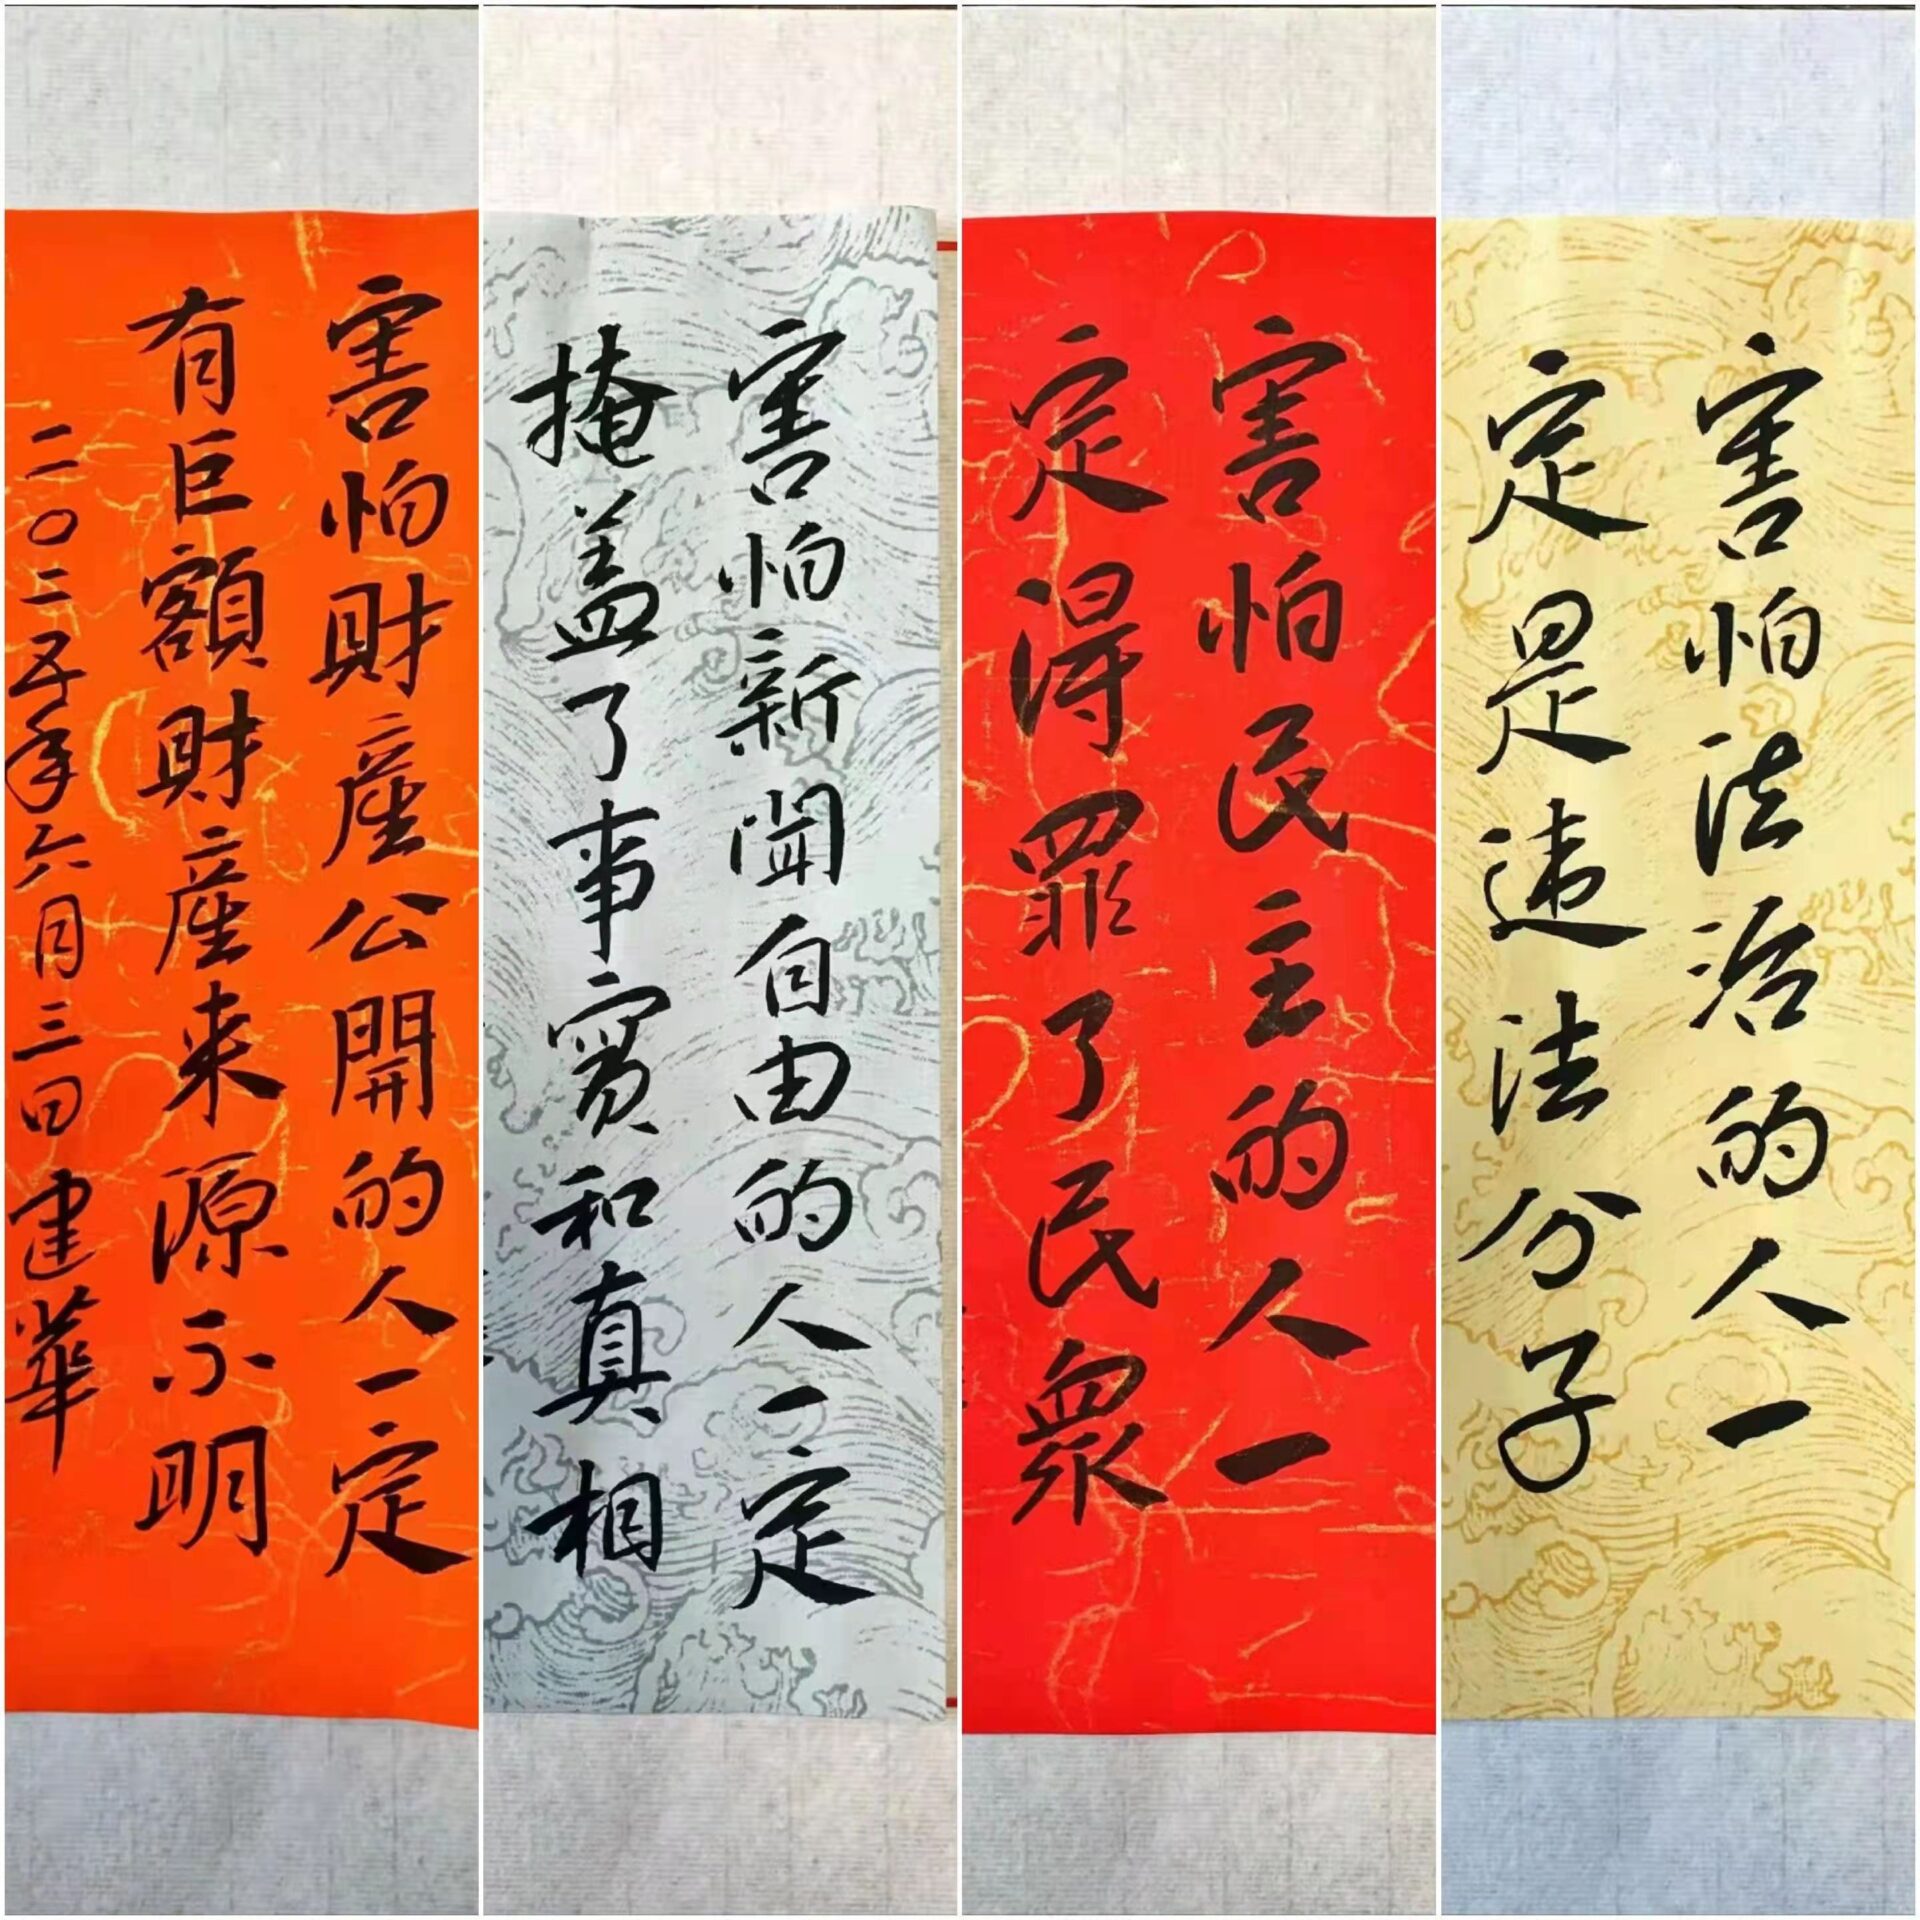 害怕法治的人一
定是违法分子
害怕民主的人一
定得罪了民眾
害怕新聞自由的人一定
掩盖了事實和真相
害怕財產公開的人一定
有巨額財產来源不明
二〇二五年六月三日 建華